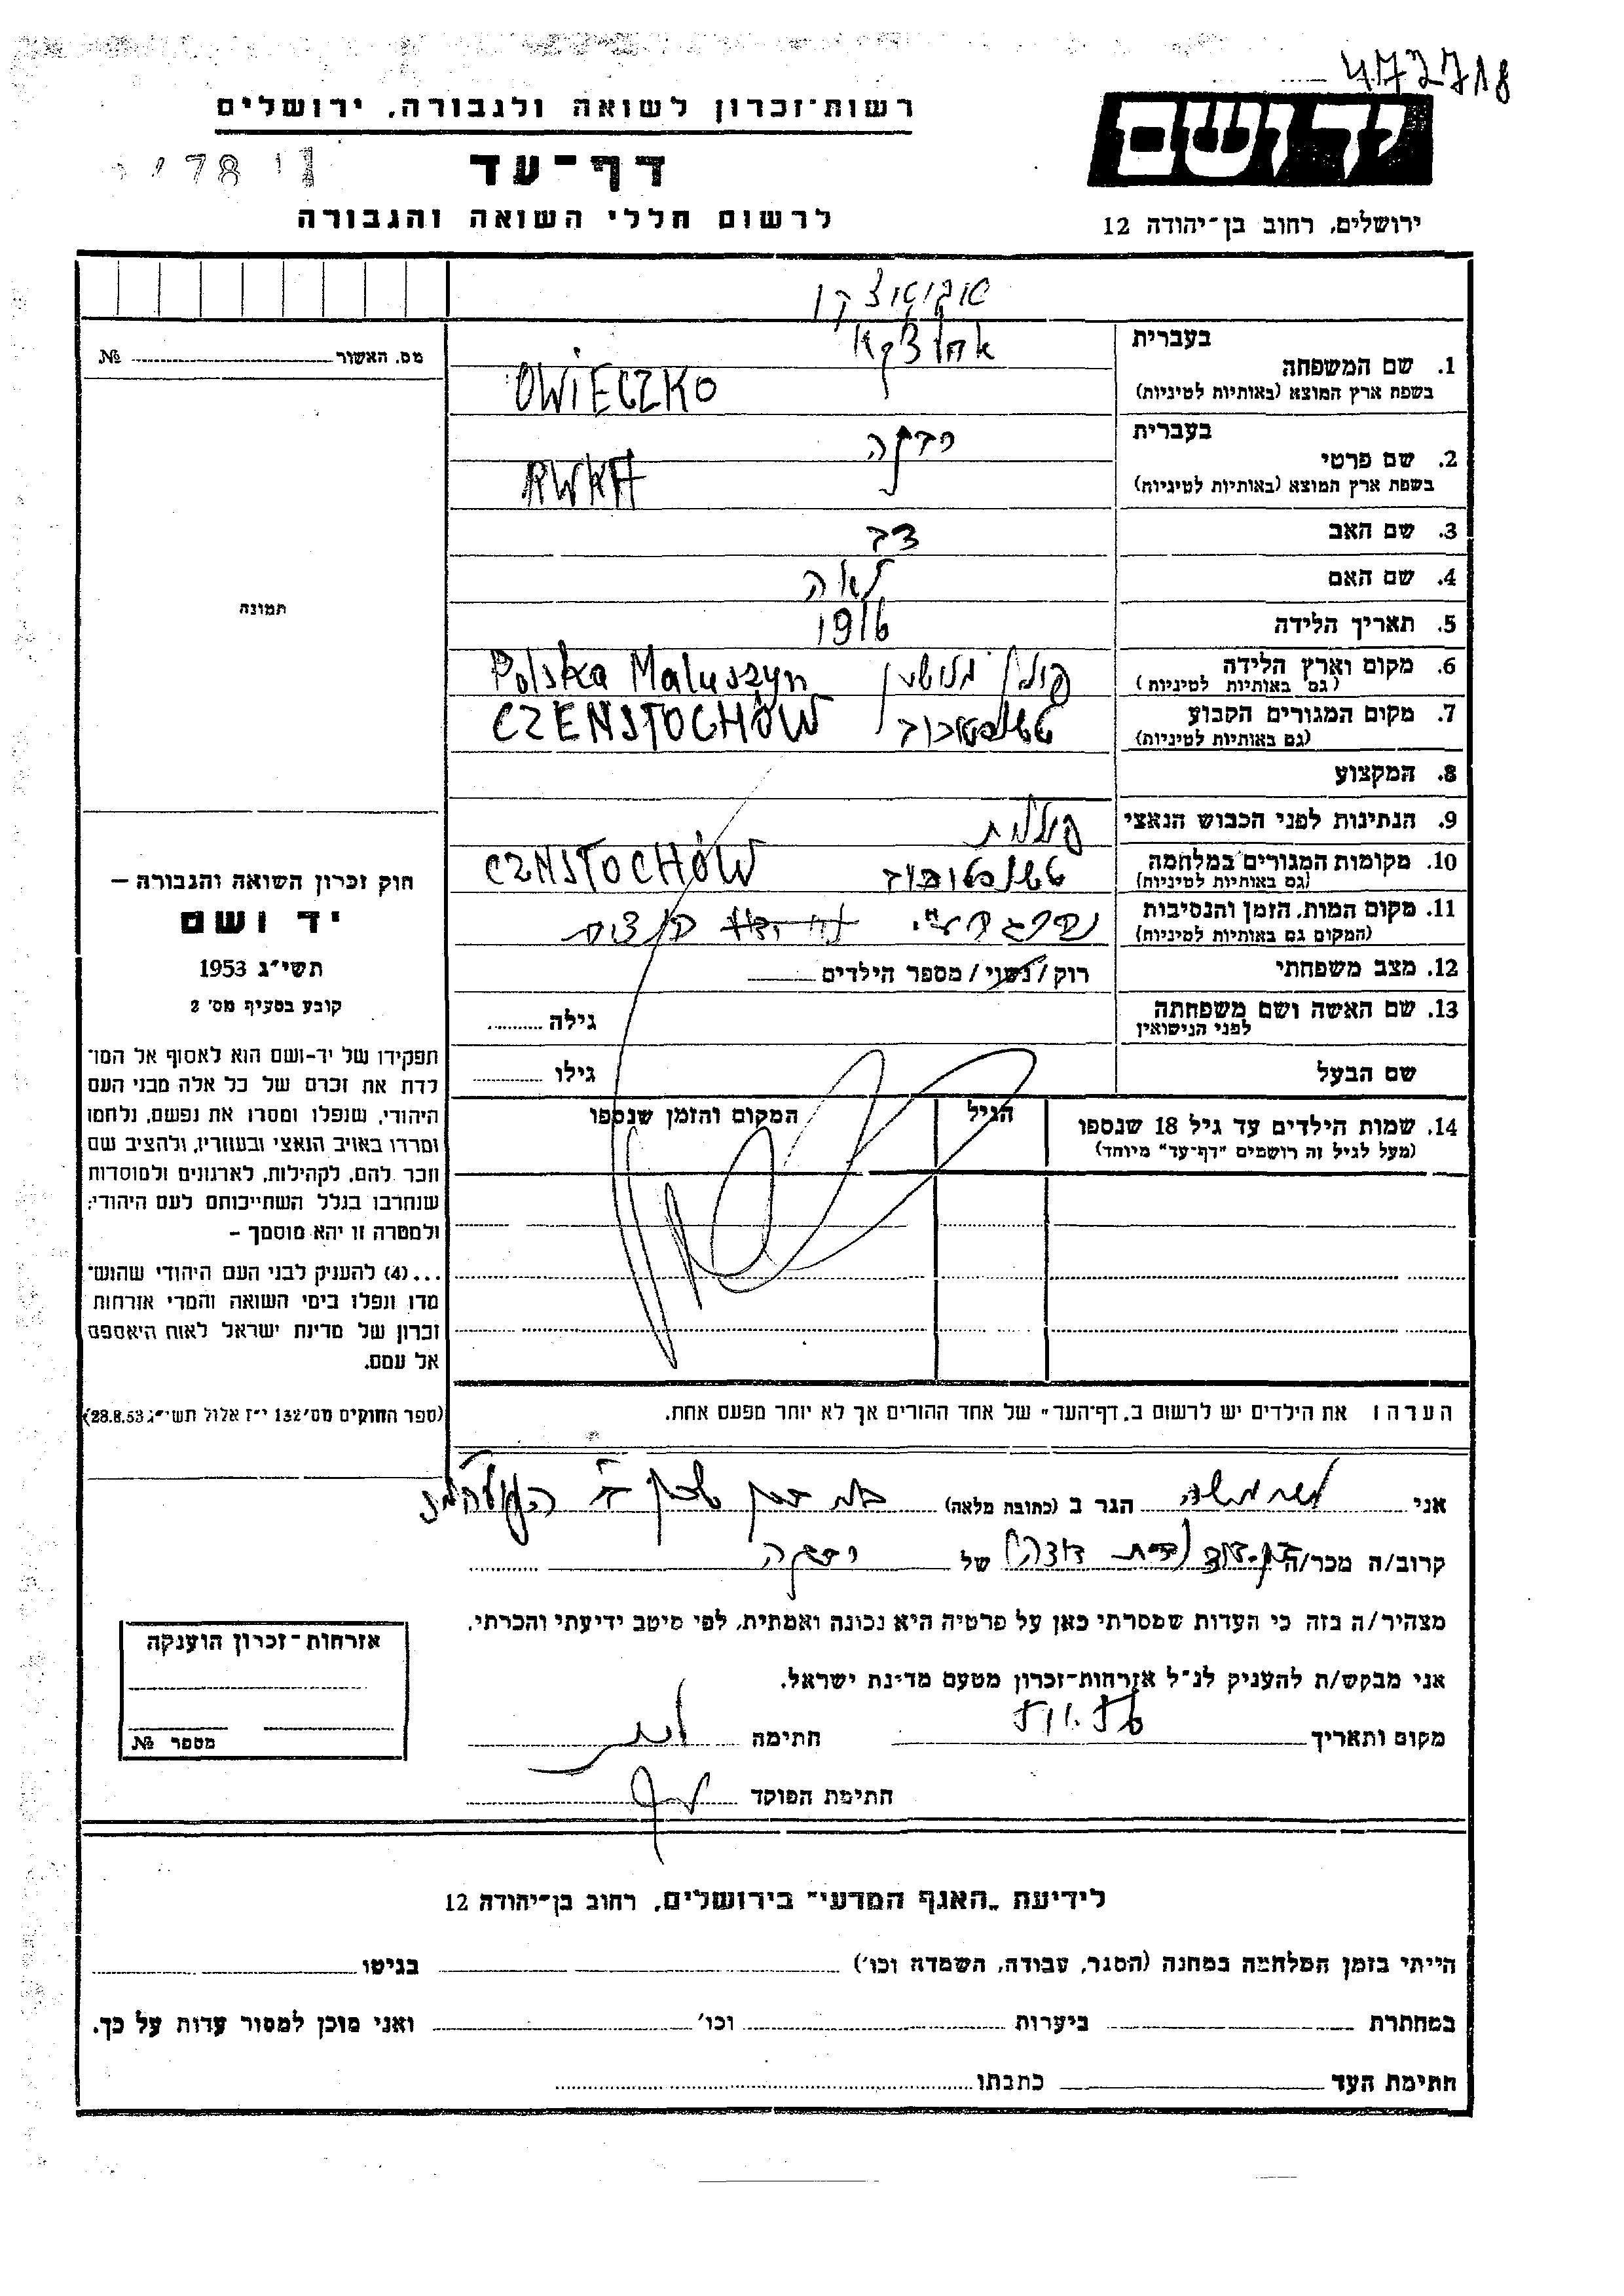 472718
רשות-זכרון לשואה ולגבורה, ירושלים
יד ושם
דף-עד
לרשום חללי השואה והגבורה
ירושלים, רחוב בן-יהודה 12
בעברית
1. שם המשפחה
OWIECZKO
בשפת ארץ המוצא (באותיות לטיניות)
בעברית
רבקה
2. שם פרטי
RWKA
בשפת ארץ המוצא (באותיות לטיניות)
3. שם האב
4. שם האם לאה
5. תאריך הלידה 1916
6. מקום וארץ הלידה פולין Polska Maluszyn
(גם באותיות לטיניות)
7. מקום המגורים הקבוע CZENSTOCHÓW
(גם באותיות לטיניות)
8. המקצוע
9. הנתינות לפני הכבוש הנאצי פולנית
10. מקומות המגורים במלחמה CZNSTOCHÓW
(גם באותיות לטיניות)
11. מקום המות, הזמן והנסיבות
(המקום גם באותיות לטיניות)
12. מצב משפחתי רוק / נשוי / מספר הילדים
13. שם האשה ושם משפחתה גילה
לפני הנישואין
שם הבעל גילו
14. שמות הילדים עד גיל 18 שנספו הגיל המקום והזמן שנספו
(מעל לגיל זה רושמים "דף-עד" מיוחד)
הערה: את הילדים יש לרשום ב"דף-העד" של אחד ההורים אך לא יותר מפעם אחת.
מס. האשור №
תמונה
חוק זכרון השואה והגבורה –
יד ושם
תשי"ג 1953
קובע בסעיף מס' 2
תפקידו של יד-ושם הוא לאסוף אל המו־
לדת את זכרם של כל אלה מבני העם
היהודי, שנפלו ומסרו את נפשם, נלחמו
ומרדו באויב הנאצי ובעוזריו, ולהציב שם
וזכר להם, לקהילות, לארגונים ולמוסדות
שנחרבו בגלל השתייכותם לעם היהודי;
ולמטרה זו יהא מוסמך –
...(4) להעניק לבני העם היהודי שהוש־
מדו ונפלו בימי השואה והמרי אזרחות
זכרון של מדינת ישראל לאות היאספם
אל עמם.
(ספר החוקים מס' 132 י"ז אלול תשי"ג 28.8.53)
אני הגר ב (כתובת מלאה)
קרוב/ה מכר/ה של רבקה
מצהיר/ה בזה כי העדות שמסרתי כאן על פרטיה היא נכונה ואמתית, לפי מיטב ידיעתי והכרתי.
אני מבקש/ת להעניק לנ"ל אזרחות-זכרון מטעם מדינת ישראל.
מקום ותאריך חתימה
חתימת הפוקד
אזרחות-זכרון הוענקה
מספר №
לידיעת "האגף המדעי" בירושלים, רחוב בן-יהודה 12
הייתי בזמן המלחמה במחנה (הסגר, עבודה, השמדה וכו') בגיטו
במחתרת ביערות וכו' ואני מוכן למסור עדות על כך.
חתימת העד כתבתו